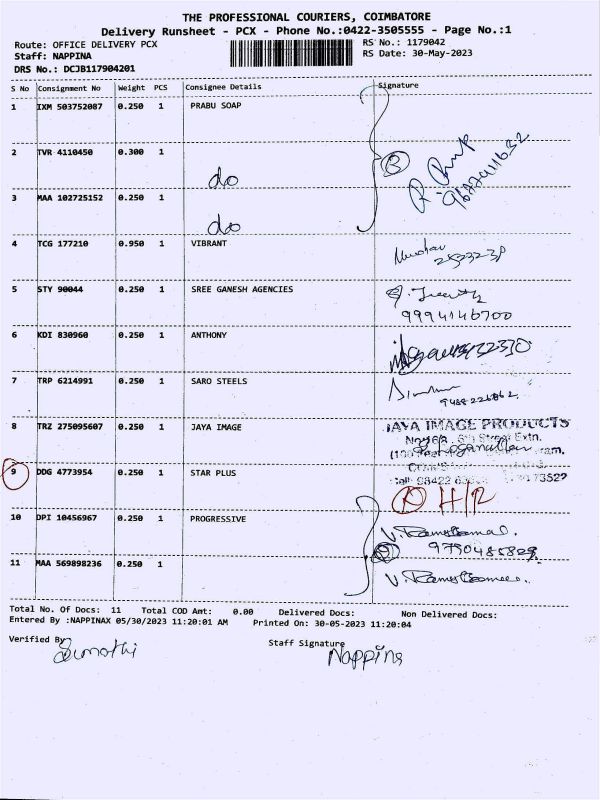 THE PROFESSIONAL COURIERS, COIMBATORE
Delivery Runsheet - PCX - Phone No.:0422-3505555 - Page No.:1
Route: OFFICE DELIVERY PCX RS No.: 1179042
Staff: NAPPINA RS Date: 30-May-2023
DRS No.: DCJB117904201
S No Consignment No Weight PCS Consignee Details Signature
1 IXM 503752087 0.250 1 PRABU SOAP
2 TVR 4110450 0.300 1
do
3 MAA 102725152 0.250 1
do
4 TCG 177210 0.950 1 VIBRANT
5 STY 90044 0.250 1 SREE GANESH AGENCIES
9994146700
6 KDI 830960 0.250 1 ANTHONY
7 TRP 6214991 0.250 1 SARO STEELS
8 TRZ 275095607 0.250 1 JAYA IMAGE JAYA IMAGE PRODUCTS
9 DDG 4773954 0.250 1 STAR PLUS
10 DPI 10456967 0.250 1 PROGRESSIVE
9790485829
11 MAA 569898236 0.250 1
Total No. Of Docs: 11 Total COD Amt: 0.00 Delivered Docs: Non Delivered Docs:
Entered By :NAPPINAX 05/30/2023 11:20:01 AM Printed On: 30-05-2023 11:20:04
Verified By Staff Signature
Sumathi Nappina